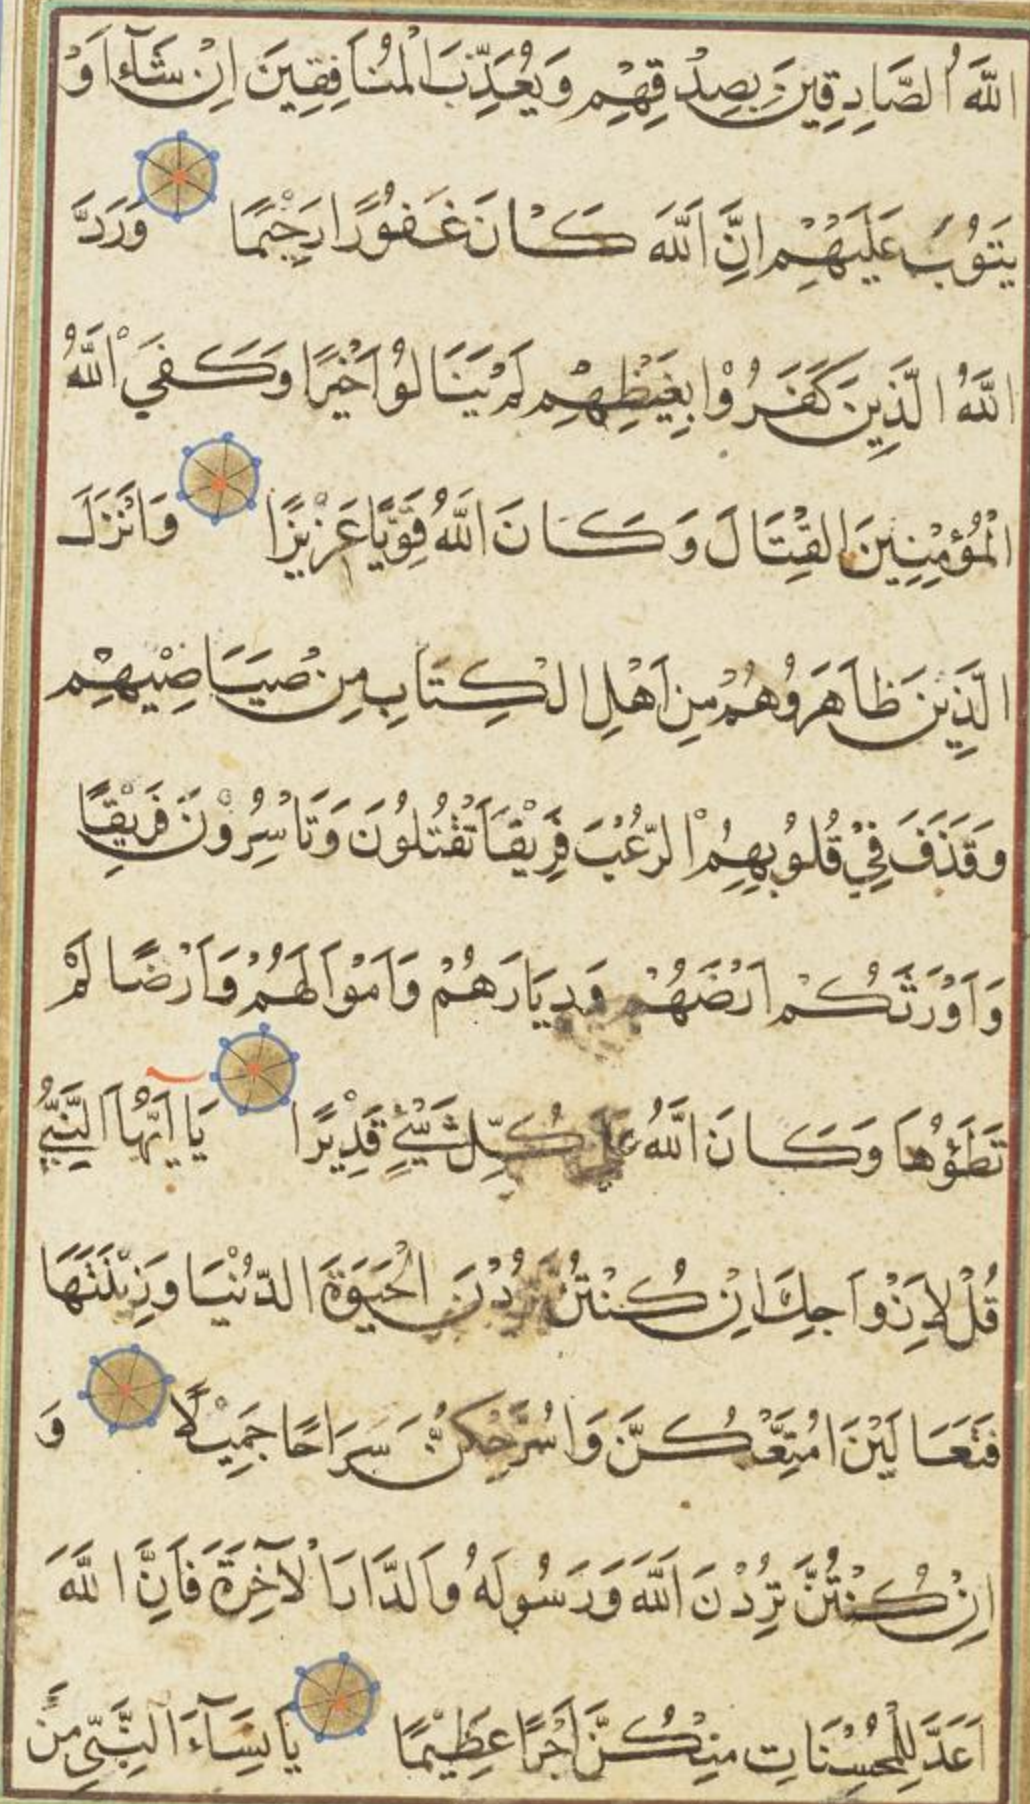 اللَّهُ الصَّادِقِينَ بِصِدْقِهِمْ وَيُعَذِّبَ الْمُنَافِقِينَ اِنْ شَآءَ اَوْ
يَتُوْبَ عَلَيْهِمْ اِنَّ اللَّهَ كَانَ غَفُوْرًا رَحِيْمًا وَرَدَّ
اللَّهُ الَّذِينَ كَفَرُوْا بِغَيْظِهِمْ لَمْ يَنَالُوْا خَيْرًا وَكَفَى اللَّهُ
الْمُؤْمِنِينَ الْقِتَالَ وَكَانَ اللَّهُ قَوِيًّا عَزِيْزًا وَاَنْزَلَ
الَّذِيْنَ ظَاهَرُوْهُمْ مِنْ اَهْلِ الْكِتَابِ مِنْ صَيَاصِيْهِمْ
وَقَذَفَ فِيْ قُلُوْبِهِمُ الرُّعْبَ فَرِيْقًا تَقْتُلُوْنَ وَتَاْسِرُوْنَ فَرِيْقًا
وَاَوْرَثَكُمْ اَرْضَهُمْ وَدِيَارَهُمْ وَاَمْوَالَهُمْ وَاَرْضًا لَمْ
تَطَؤُهَا وَكَانَ اللَّهُ عَلٰى كُلِّ شَيْئٍ قَدِيْرًا يَا اَيُّهَا النَّبِيُّ
قُلْ لِاَزْوَاجِكَ اِنْ كُنْتُنَّ تُرِدْنَ الْحَيٰوةَ الدُّنْيَا وَزِيْنَتَهَا
فَتَعَالَيْنَ اُمَتِّعْكُنَّ وَاُسَرِّحْكُنَّ سَرَاحًا جَمِيْلًا وَ
اِنْ كُنْتُنَّ تُرِدْنَ اللَّهَ وَرَسُولَهُ وَالدَّارَ الْآخِرَةَ فَاِنَّ اللَّهَ
اَعَدَّ لِلْمُحْسِنَاتِ مِنْكُنَّ اَجْرًا عَظِيْمًا يَا نِسَآءَ النَّبِيِّ مَنْ